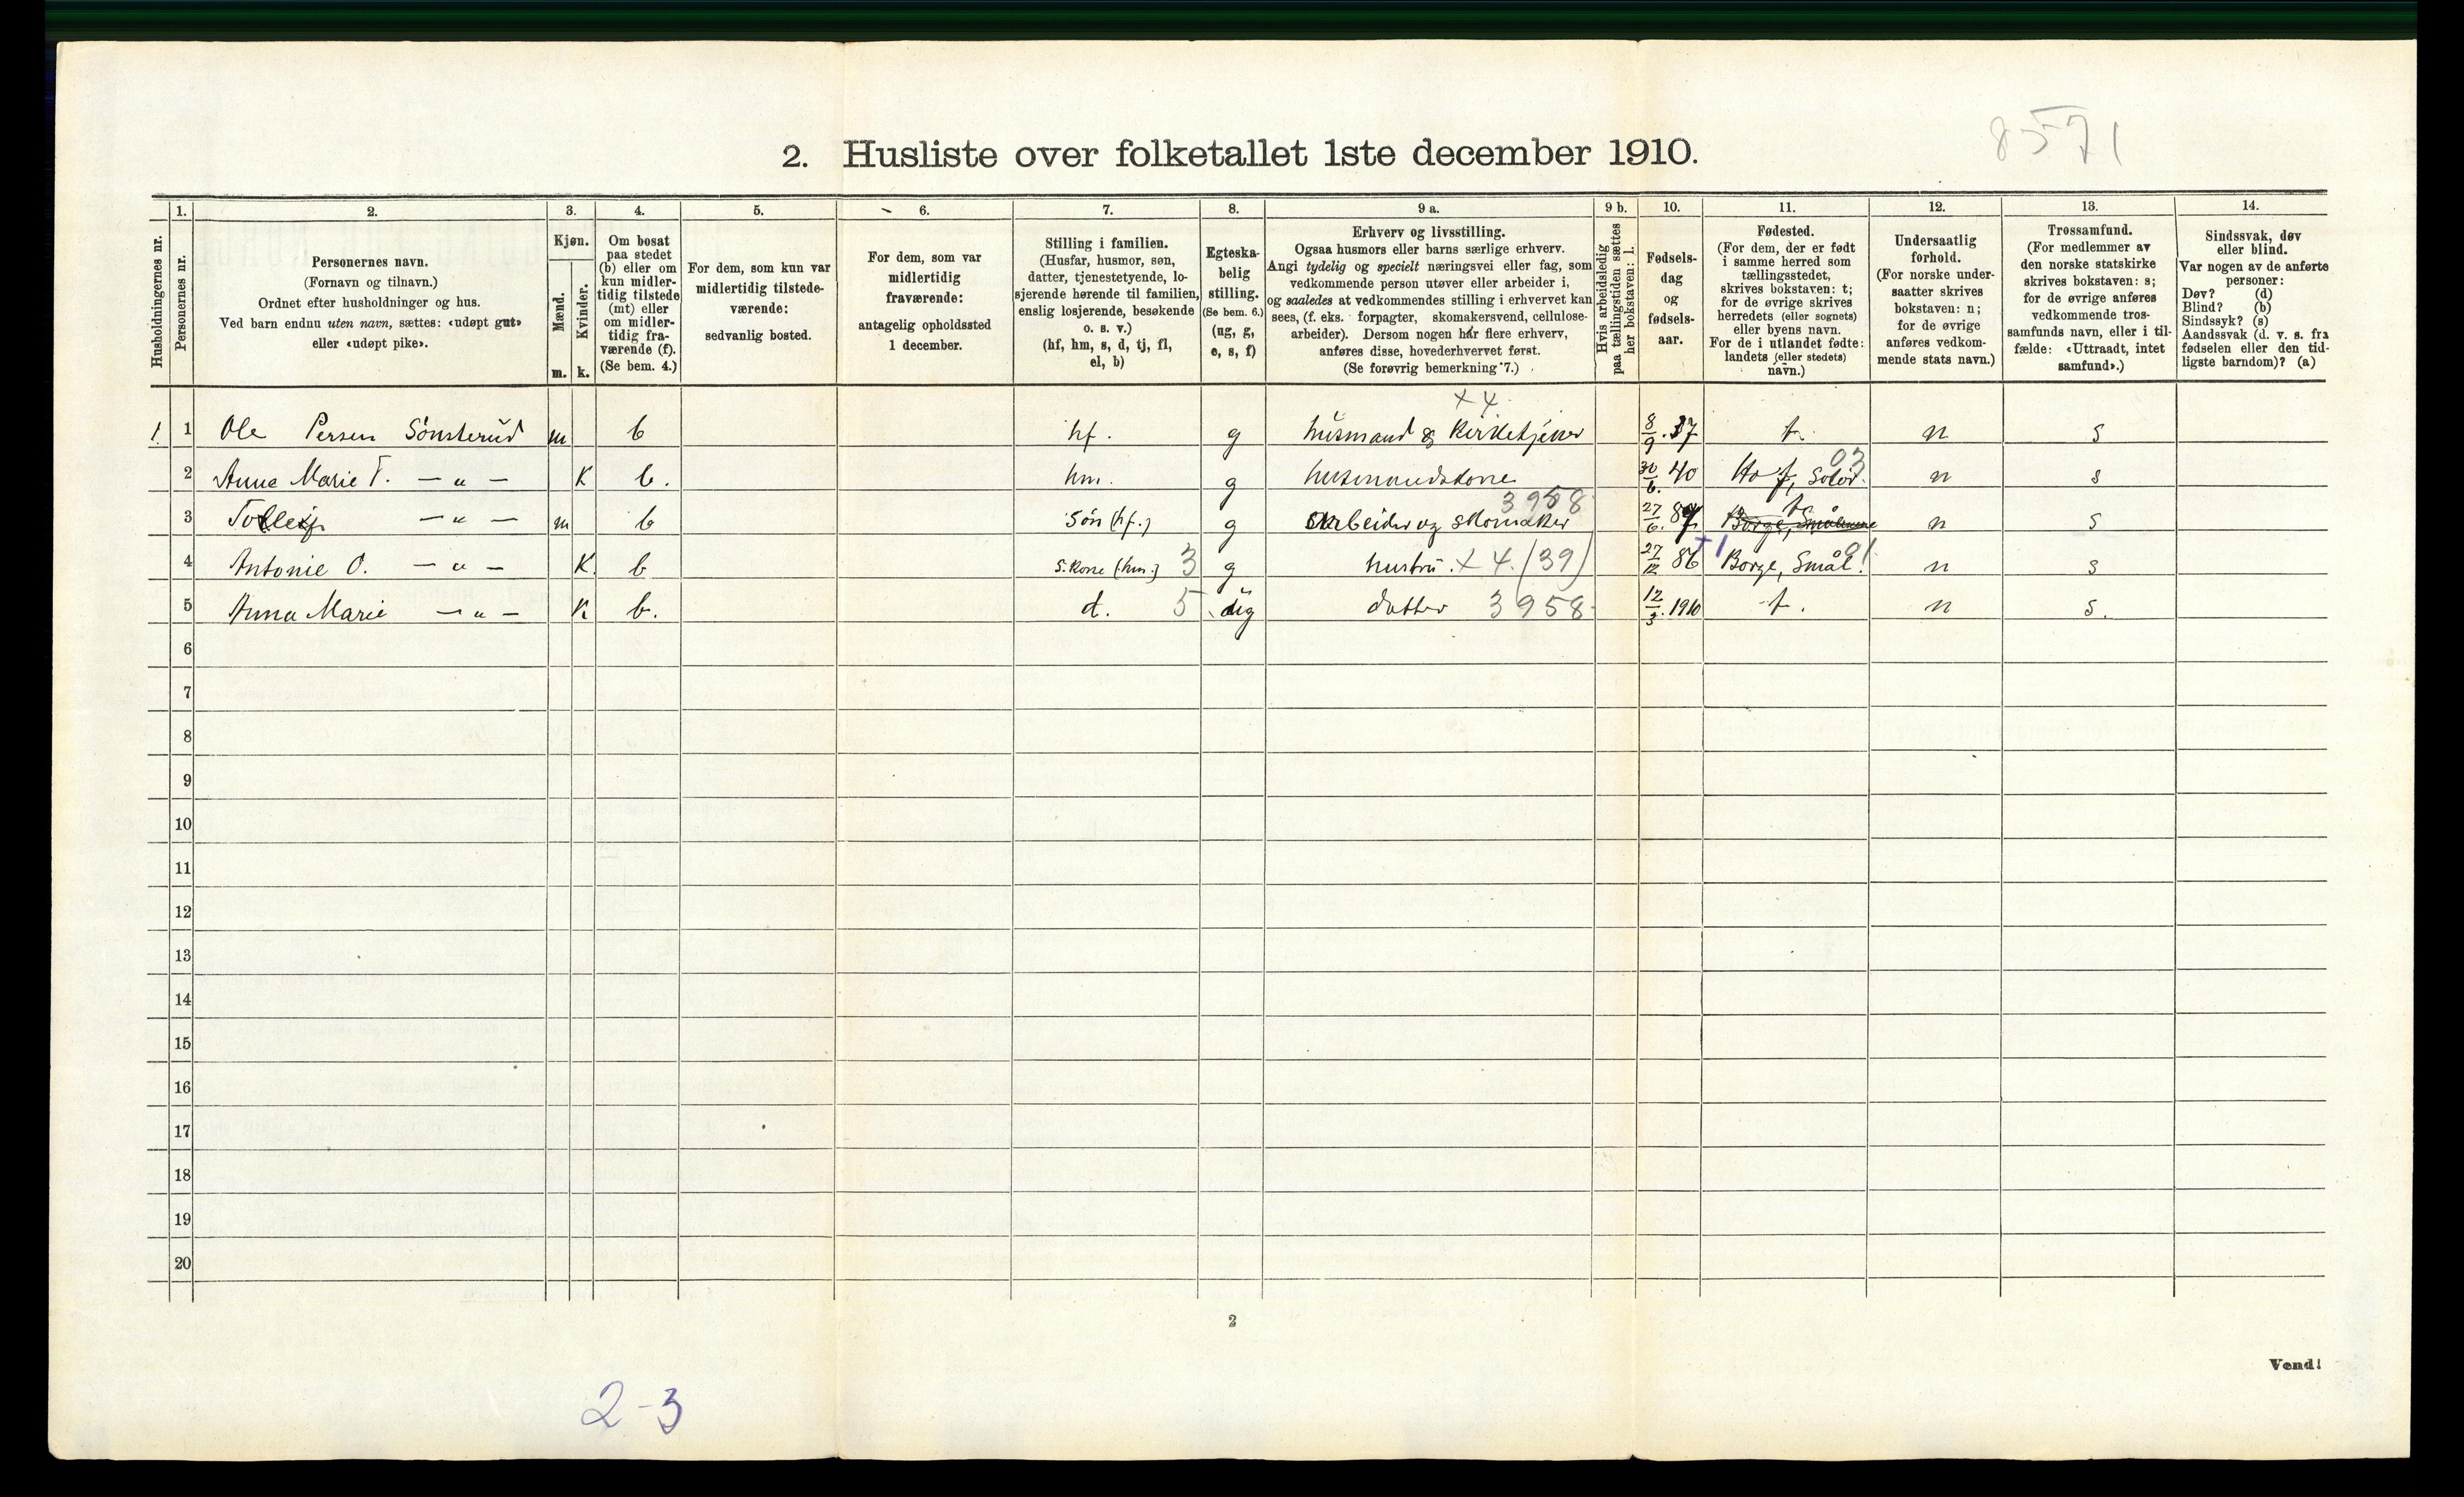 8571
2. Husliste over folketallet 1ste december 1910.
Husholdningernes nr.
1.
Personernes nr.
2.
Personernes navn.
(Fornavn og tilnavn.)
Ordnet efter husholdninger og hus.
Ved barn endnu uten navn, sættes: «udøpt gut»
eller «udøpt pike».
3.
Kjøn.
Mænd.
Kvinder.
m. k.
4.
Om bosat
paa stedet
(b) eller om
kun midler-
tidig tilstede
(mt) eller
om midler-
tidig fra-
værende (f).
(Se bem. 4.)
5.
For dem, som kun var
midlertidig tilstede-
værende:
sedvanlig bosted.
6.
For dem, som var
midlertidig
fraværende:
antagelig opholdssted
1 december.
7.
Stilling i familien.
(Husfar, husmor, søn,
datter, tjenestetyende, lo-
sjerende hørende til familien,
enslig losjerende, besøkende
o. s. v.)
(hf, hm, s, d, tj, fl,
el, b)
8.
Egteska-
belig
stilling.
(Se bem. 6.)
(ug, g,
e, s, f)
9 a.
Erhverv og livsstilling.
Ogsaa husmors eller barns særlige erhverv.
Angi tydelig og specielt næringsvei eller fag, som
vedkommende person utøver eller arbeider i,
og saaledes at vedkommendes stilling i erhvervet kan
sees, (f. eks. forpagter, skomakersvend, cellulose-
arbeider). Dersom nogen har flere erhverv,
anføres disse, hovederhvervet først.
(Se forøvrig bemerkning 7.)
9 b.
Hvis arbeidsledig
paa tællingstiden sættes
her bokstaven: l.
10.
Fødsels-
dag
og
fødsels-
aar.
11.
Fødested.
(For dem, der er født
i samme herred som
tællingsstedet,
skrives bokstaven: t;
for de øvrige skrives
herredets (eller sognets)
eller byens navn.
For de i utlandet fødte:
landets (eller stedets)
navn.)
12.
Undersaatlig
forhold.
(For norske under-
saatter skrives
bokstaven: n;
for de øvrige
anføres vedkom-
mende stats navn.)
13.
Trossamfund.
(For medlemmer av
den norske statskirke
skrives bokstaven: s;
for de øvrige anføres
vedkommende tros-
samfunds navn, eller i til-
fælde: «Uttraadt, intet
samfund».)
14.
Sindssvak, døv
eller blind.
Var nogen av de anførte
personer:
Døv? (d)
Blind? (b)
Sindssyk? (s)
Aandssvak (d. v. s. fra
fødselen eller den tid-
ligste barndom)? (a)
x 4
1. 1 Ole Persen Sønsterud m b hf. g husmand & Kirketjener 8/9 .37 t. n s
03
2 Anne Marie T. — „ — K b. hm. g husmandskone 30/6. 40 Hof, Solør. n s
3958
3 Tolleif — „ — m b Søn (hf.) g Arbeider og skomaker 27/6. 87 t Borge, Smålenene n s
4 Antonie O. — „ — K. b S. kone (hm.) 3 g hustru. x 4. (39) 27/12 86 +1 Borge, Smål. 01 n s
5 Anna Marie — „ — K b. d. 5 ug datter 3958 12/3. 1910 t. n s.
6
7
8
9
10
11
12
13
14
15
16
17
18
19
20
2
Vend!
2-3